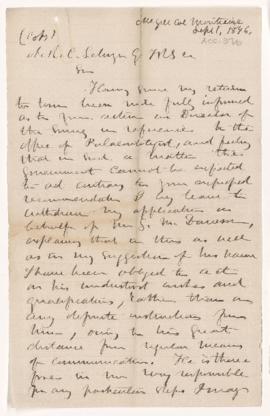 McGill Col Montreal
Sept 1, 1876.
(Copy)
ACC: 376
A. R. C. Selwyn Esq FRS &c
Sir
Having since my return
to town been made fully informed
as to your action as Director of
the Survey in reference to the
office of Palaeontologist, and feeling
that in such a matter the
Government cannot be expected
to act contrary to your
recommendation I beg leave to
withdraw my application on
behalf of Mr G. M. Dawson,
explaining that in this as well
as in my suggestion of his name
I have been obliged to act
on his understood wishes and
qualifications, rather than on
any definite instructions from
him, owing to his great
distance from regular means
of communication. He is there
fore in no way responsible
for any particular steps I may